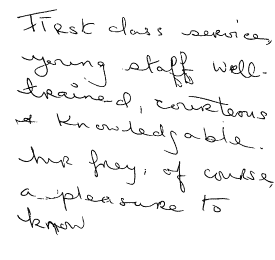 First class service,
young staff well-
trained, courteous
& knowledgable.
Mr Frey, of course,
a pleasure to
know